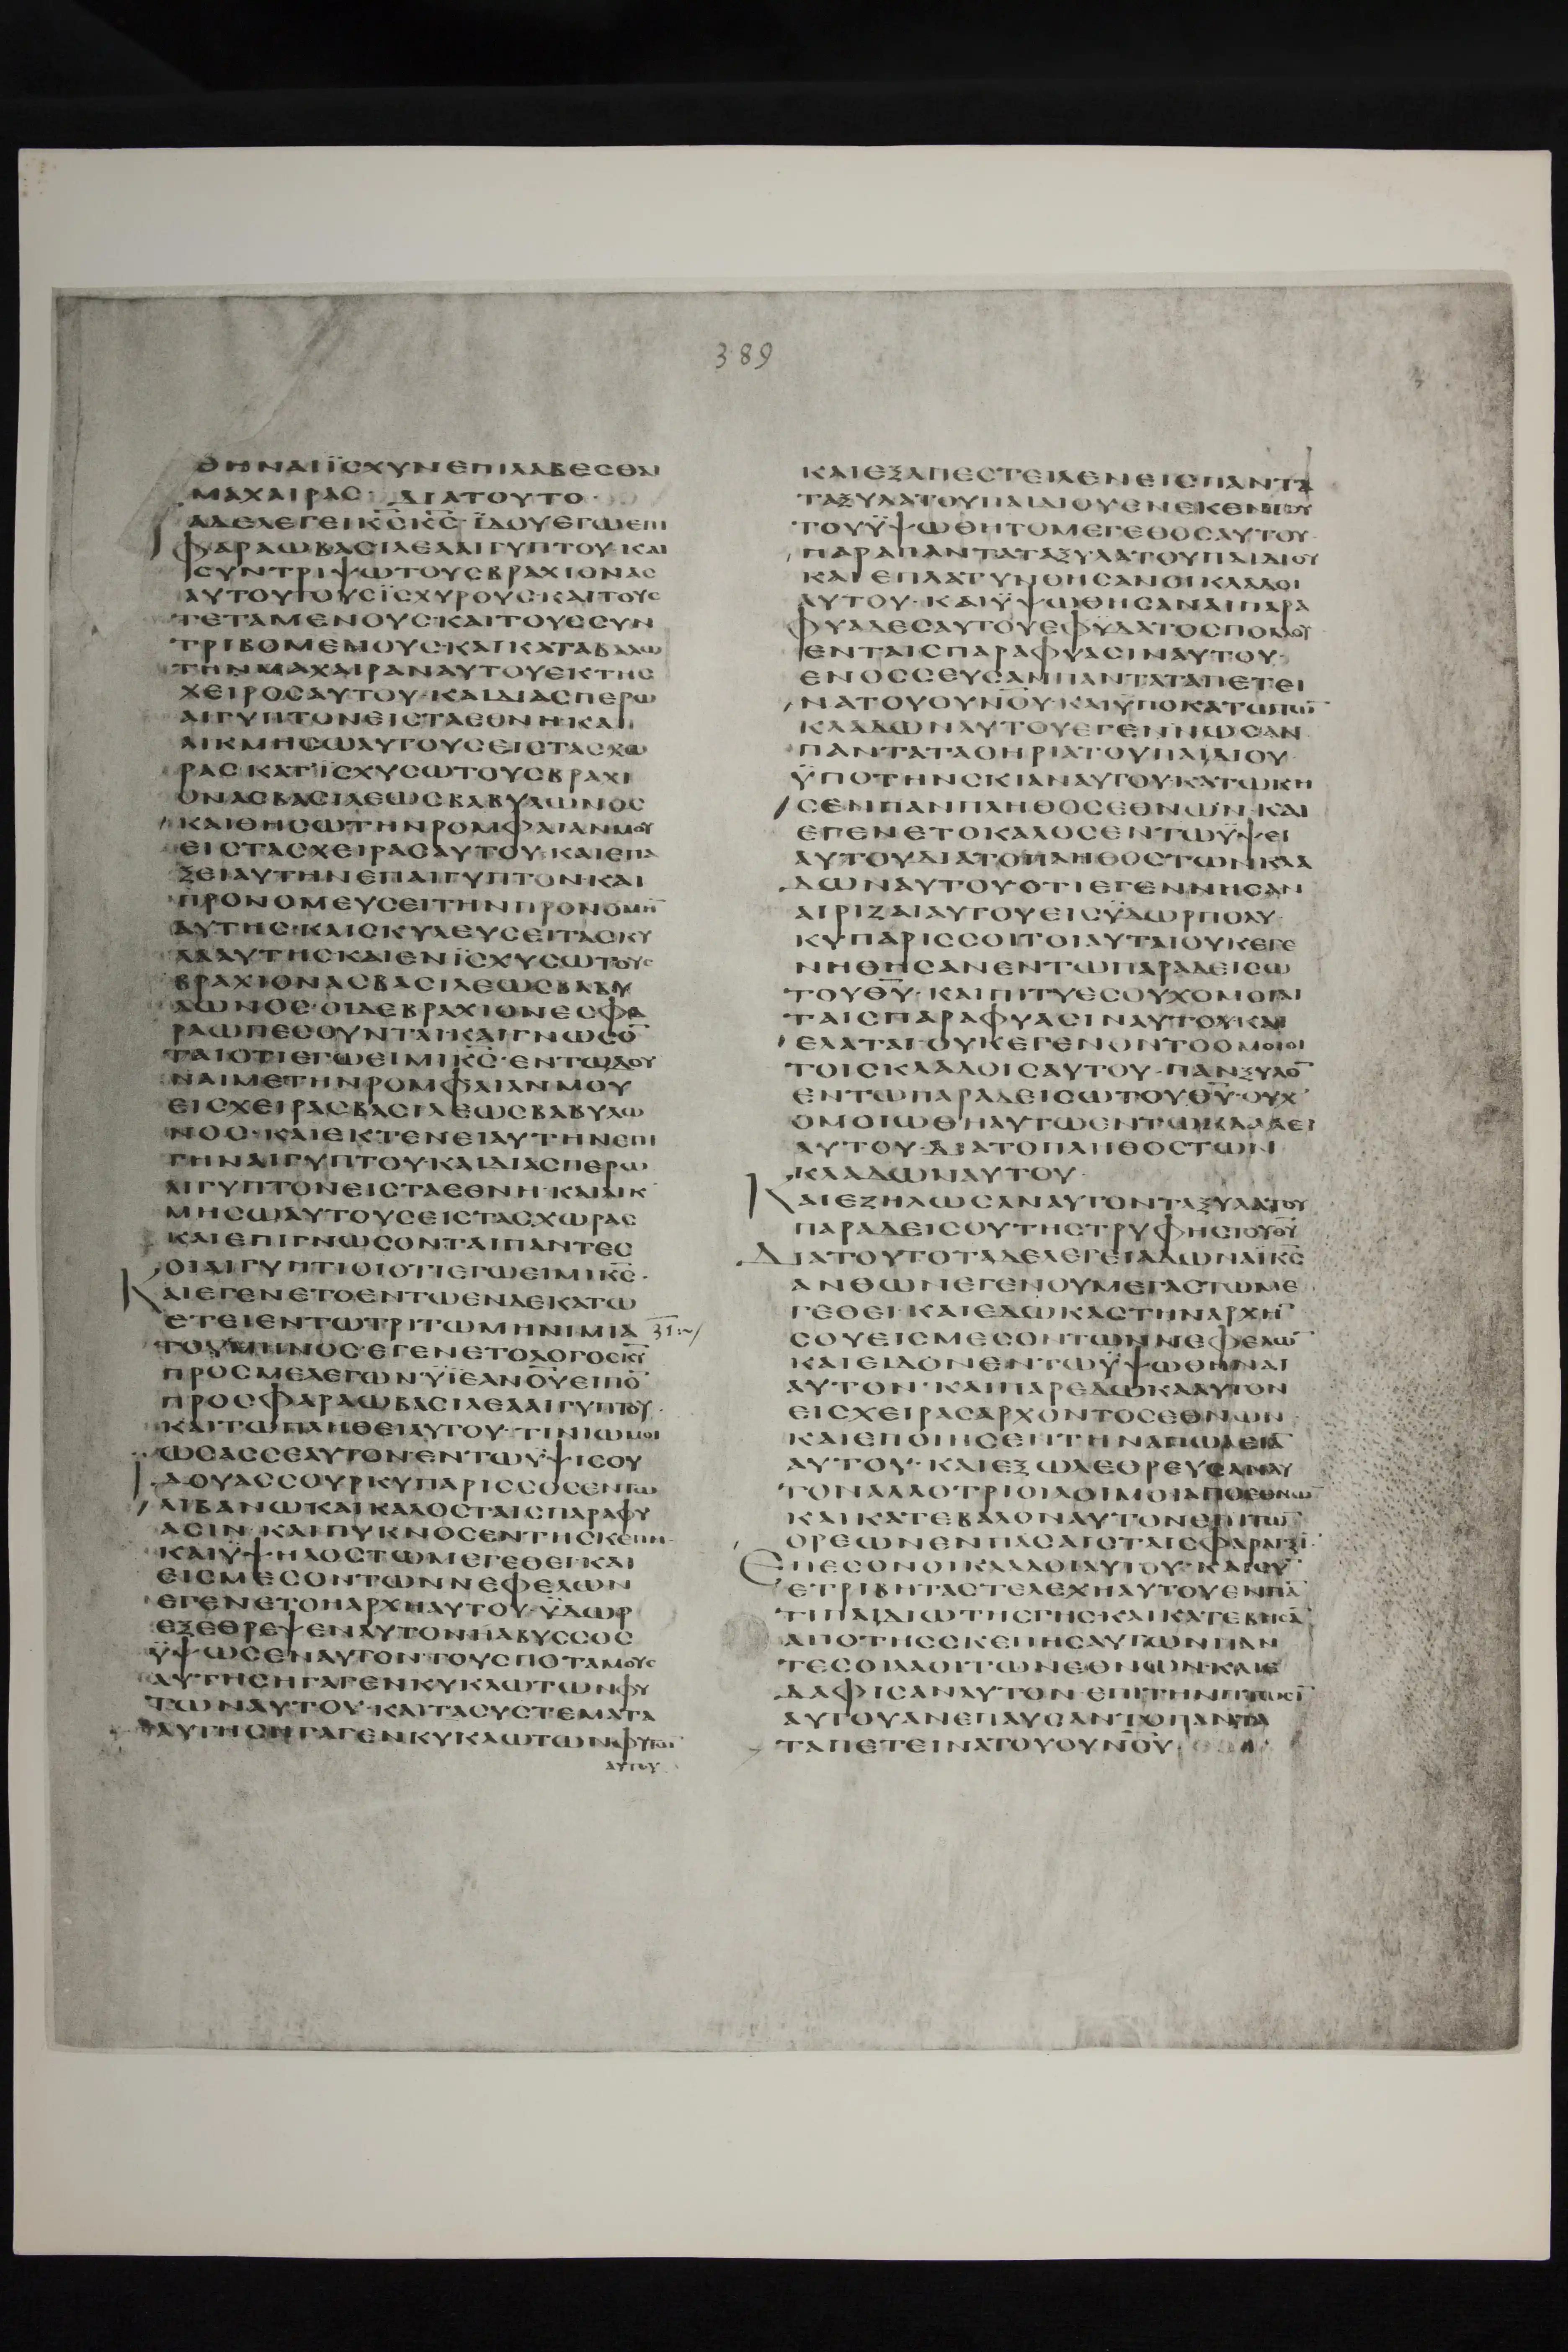 389
ΘΗΝΑΙΪΣΧΥΝΕΠΙΛΑΒΕΣΘΑΙ
ΜΑΧΑΙΡΑΣ ΔΙΑΤΟΥΤΟ·
ΤΑΔΕΛΕΓΕΙΚ̅Σ̅Κ̅Σ̅·ΪΔΟΥΕΓΩΕΠΙ
ΦΑΡΑΩΒΑΣΙΛΕΑΑΙΓΥΠΤΟΥ·ΚΑΙ
ΣΥΝΤΡΙΨΩΤΟΥΣΒΡΑΧΙΟΝΑΣ
ΑΥΤΟΥΤΟΥΣΪΣΧΥΡΟΥΣ·ΚΑΙΤΟΥΣ
ΤΕΤΑΜΕΝΟΥΣ·ΚΑΙΤΟΥΣΣΥΝ
ΤΡΙΒΟΜΕΝΟΥΣ·ΚΑΙΚΑΤΑΒΑΛΩ
ΤΗΝΜΑΧΑΙΡΑΝΑΥΤΟΥΕΚΤΗΣ
ΧΕΙΡΟΣΑΥΤΟΥ·ΚΑΙΔΙΑΣΠΕΡΩ
ΑΙΓΥΠΤΟΝΕΙΣΤΑΕΘΝΗ·ΚΑΙ
ΛΙΚΜΗΣΩΑΥΤΟΥΣΕΙΣΤΑΣΧΩ
ΡΑΣ·ΚΑΤΙΣΧΥΣΩΤΟΥΣΒΡΑΧΙ
ΟΝΑΣΒΑΣΙΛΕΩΣΒΑΒΥΛΩΝΟΣ
ΚΑΙΘΗΣΩΤΗΝΡΟΜΦΑΙΑΝΜΟΥ
ΕΙΣΤΑΣΧΕΙΡΑΣΑΥΤΟΥ·ΚΑΙΕΠΑ
ΞΕΙΑΥΤΗΝΕΠΑΙΓΥΠΤΟΝ·ΚΑΙ
ΠΡΟΝΟΜΕΥΣΕΙΤΗΝΠΡΟΝΟΜΗ̅
ΑΥΤΗΣ·ΚΑΙΣΚΥΛΕΥΣΕΙΤΑΣΚΥ
ΛΑΑΥΤΗΣΚΑΙΕΝΪΣΧΥΣΩΤΟΥΣ
ΒΡΑΧΙΟΝΑΣΒΑΣΙΛΕΩΣΒΑΒΥ
ΛΩΝΟΣ·ΟΙΔΕΒΡΑΧΙΟΝΕΣΦΑ
ΡΑΩΠΕΣΟΥΝΤΑΙ·ΚΑΙΓΝΩΣΟ̅
ΤΑΙΟΤΙΕΓΩΕΙΜΙΚ̅Σ̅·ΕΝΤΩΔΟΥ
ΝΑΙΜΕΤΗΝΡΟΜΦΑΙΑΝΜΟΥ
ΕΙΣΧΕΙΡΑΣΒΑΣΙΛΕΩΣΒΑΒΥΛΩ
ΝΟΣ·ΚΑΙΕΚΤΕΝΕΙΑΥΤΗΝΕΠΙ
ΓΗΝΑΙΓΥΠΤΟΥ·ΚΑΙΔΙΑΣΠΕΡΩ
ΑΙΓΥΠΤΟΝΕΙΣΤΑΕΘΝΗ·ΚΑΙΛΙΚ
ΜΗΣΩΑΥΤΟΥΣΕΙΣΤΑΣΧΩΡΑΣ
ΚΑΙΕΠΙΓΝΩΣΟΝΤΑΙΠΑΝΤΕΣ
ΟΙΑΙΓΥΠΤΙΟΙΟΤΙΕΓΩΕΙΜΙΚ̅Σ̅·
ΚΑΙΕΓΕΝΕΤΟΕΝΤΩΕΝΔΕΚΑΤΩ
ΕΤΕΙΕΝΤΩΤΡΙΤΩΜΗΝΙΜΙΑ 31
ΤΟΥΜΗΝΟΣ·ΕΓΕΝΕΤΟΛΟΓΟΣΚ̅Υ̅
ΠΡΟΣΜΕΛΕΓΩΝ·ΫΪΕΑΝΟ̅Υ̅ΕΙΠΟ̅
ΠΡΟΣΦΑΡΑΩΒΑΣΙΛΕΑΑΙΓΥΠΤΟΥ·
ΚΑΙΤΩΠΛΗΘΕΙΑΥΤΟΥ·ΤΙΝΙΩΜΟΙ
ΩΣΑΣΣΕΑΥΤΟΝ·ΕΝΤΩΫΨΙΣΟΥ
ΪΔΟΥΑΣΣΟΥΡΚΥΠΑΡΙΣΣΟΣΕΝΤΩ
ΛΙΒΑΝΩΚΑΙΚΑΛΟΣΤΑΙΣΠΑΡΑΦΥ
ΑΣΙΝ·ΚΑΙΠΥΚΝΟΣΕΝΤΗΣΚΕΠΗ·
ΚΑΙΫΨΗΛΟΣΤΩΜΕΓΕΘΕΙ·ΚΑΙ
ΕΙΣΜΕΣΟΝΤΩΝΝΕΦΕΛΩΝ
ΕΓΕΝΕΤΟΗΑΡΧΗΑΥΤΟΥ·ΫΔΩΡ
ΕΞΕΘΡΕΨΕΝΑΥΤΟΝ·ΗΑΒΥΣΣΟΣ
ΫΨΩΣΕΝΑΥΤΟΝ·ΤΟΥΣΠΟΤΑΜΟΥΣ
ΑΥΤΗΣΗΓΑΓΕΝΚΥΚΛΩΤΩΝΦΥ
ΤΩΝΑΥΤΟΥ·ΚΑΙΤΑΣΥΣΤΕΜΑΤΑ
ΑΥΤΗΣΗΓΑΓΕΝΚΥΚΛΩΤΩΝΦΥΤΩ̅
ΑΥΤΟΥ
ΚΑΙΕΞΑΠΕΣΤΕΙΛΕΝΕΙΣΠΑΝΤΑ
ΤΑΞΥΛΑΤΟΥΠΑΙΔΙΟΥΕΝΕΚΕΝ
ΤΟΥΫΨΩΘΗΤΟΜΕΓΕΘΟΣΑΥΤΟΥ
ΠΑΡΑΠΑΝΤΑΤΑΞΥΛΑΤΟΥΠΑΙΔΙΟΥ
ΚΑΙΕΠΛΑΤΥΝΘΗΣΑΝΟΙΚΛΑΔΟΙ
ΑΥΤΟΥ·ΚΑΙΫΨΩΘΗΣΑΝΑΙΠΑΡΑ
ΦΥΑΔΕΣΑΥΤΟΥΕΦΫΔΑΤΟΣΠΟΛΛΟΥ
ΕΝΤΑΙΣΠΑΡΑΦΥΑΣΙΝΑΥΤΟΥ·
ΕΝΟΣΣΕΥΣΑΝΠΑΝΤΑΤΑΠΕΤΕΙ
ΝΑΤΟΥΟΥΝ̅Ο̅Υ̅·ΚΑΙΫΠΟΚΑΤΩΤΩ̅
ΚΛΑΔΩΝΑΥΤΟΥΕΓΕΝΝΩΣΑΝ
ΠΑΝΤΑΤΑΘΗΡΙΑΤΟΥΠΑΙΔΙΟΥ
ΫΠΟΤΗΝΣΚΙΑΝΑΥΤΟΥ·ΚΑΤΩΚΗ
ΣΕΝΠΑΝΠΛΗΘΟΣΕΘΝΩΝ·ΚΑΙ
ΕΓΕΝΕΤΟΚΑΛΟΣΕΝΤΩΫΨΕΙ
ΑΥΤΟΥΔΙΑΤΟΠΛΗΘΟΣΤΩΝΚΛΑ
ΔΩΝΑΥΤΟΥΟΤΙΕΓΕΝΝΗΣΑΝ
ΑΙΡΙΖΑΙΑΥΤΟΥΕΙΣΫΔΩΡΠΟΛΥ·
ΚΥΠΑΡΙΣΣΟΙΤΟΙΑΥΤΑΙΟΥΚΕΓΕ
ΝΗΘΗΣΑΝΕΝΤΩΠΑΡΑΔΕΙΣΩ
ΤΟΥΘ̅Υ̅·ΚΑΙΠΙΤΥΕΣΟΥΧΟΜΟΙΑΙ
ΤΑΙΣΠΑΡΑΦΥΑΣΙΝΑΥΤΟΥ·ΚΑΙ
ΕΛΑΤΑΙΟΥΚΕΓΕΝΟΝΤΟΟΜΟΙΟΙ
ΤΟΙΣΚΛΑΔΟΙΣΑΥΤΟΥ·ΠΑΝΞΥΛΟ̅
ΕΝΤΩΠΑΡΑΔΕΙΣΩΤΟΥΘ̅Υ̅·ΟΥΧ
ΟΜΟΙΩΘΗΑΥΤΩΕΝΤΩΚΑΛΛΕΙ
ΑΥΤΟΥ·ΔΙΑΤΟΠΛΗΘΟΣΤΩΝ
ΚΛΑΔΩΝΑΥΤΟΥ·
ΚΑΙΕΖΗΛΩΣΑΝΑΥΤΟΝΤΑΞΥΛΑΤΟΥ
ΠΑΡΑΔΕΙΣΟΥΤΗΣΤΡΥΦΗΣΤΟΥΘ̅Υ̅
ΔΙΑΤΟΥΤΟΤΑΔΕΛΕΓΕΙΑΔΩΝΑΪΚ̅Σ̅
ΑΝΘΩΝΕΓΕΝΟΥΜΕΓΑΣΤΩΜΕ
ΓΕΘΕΙ·ΚΑΙΕΔΩΚΑΣΤΗΝΑΡΧΗ̅
ΣΟΥΕΙΣΜΕΣΟΝΤΩΝΝΕΦΕΛΩ̅
ΚΑΙΕΙΔΟΝΕΝΤΩΫΨΩΘΗΝΑΙ
ΑΥΤΟΝ·ΚΑΙΠΑΡΕΔΩΚΑΑΥΤΟΝ
ΕΙΣΧΕΙΡΑΣΑΡΧΟΝΤΟΣΕΘΝΩΝ·
ΚΑΙΕΠΟΙΗΣΕΝΤΗΝΑΠΩΛΕΙΑ̅
ΑΥΤΟΥ·ΚΑΙΕΞΩΛΕΘΡΕΥΣΑΝΑΥ
ΤΟΝΑΛΛΟΤΡΙΟΙΛΟΙΜΟΙΑΠΟΕΘΝΩ̅
ΚΑΙΚΑΤΕΒΑΛΟΝΑΥΤΟΝΕΠΙΤΩ̅
ΟΡΕΩΝΕΝΠΑΣΑΙΣΤΑΙΣΦΑΡΑΓΞΙ·
ΕΠΕΣΟΝΟΙΚΛΑΔΟΙΑΥΤΟΥ·ΚΑΙΣΥ̅
ΕΤΡΙΒΗΤΑΣΤΕΛΕΧΗΑΥΤΟΥΕΝΠΑ̅
ΤΙΠΑΙΔΙΩΤΗΣΓΗΣ·ΚΑΙΚΑΤΕΒΗΣΑ̅
ΑΠΟΤΗΣΣΚΕΠΗΣΑΥΤΩΝΠΑΝ
ΤΕΣΟΙΛΑΟΙΤΩΝΕΘΝΩΝ·ΚΑΙΕ
ΔΑΦΙΣΑΝΑΥΤΟΝ·ΕΠΙΤΗΝΠΤΩΣΙ̅
ΑΥΤΟΥΑΝΕΠΑΥΣΑΝΤΟΠΑΝΤΑ
ΤΑΠΕΤΕΙΝΑΤΟΥΟΥΝ̅Ο̅Υ̅